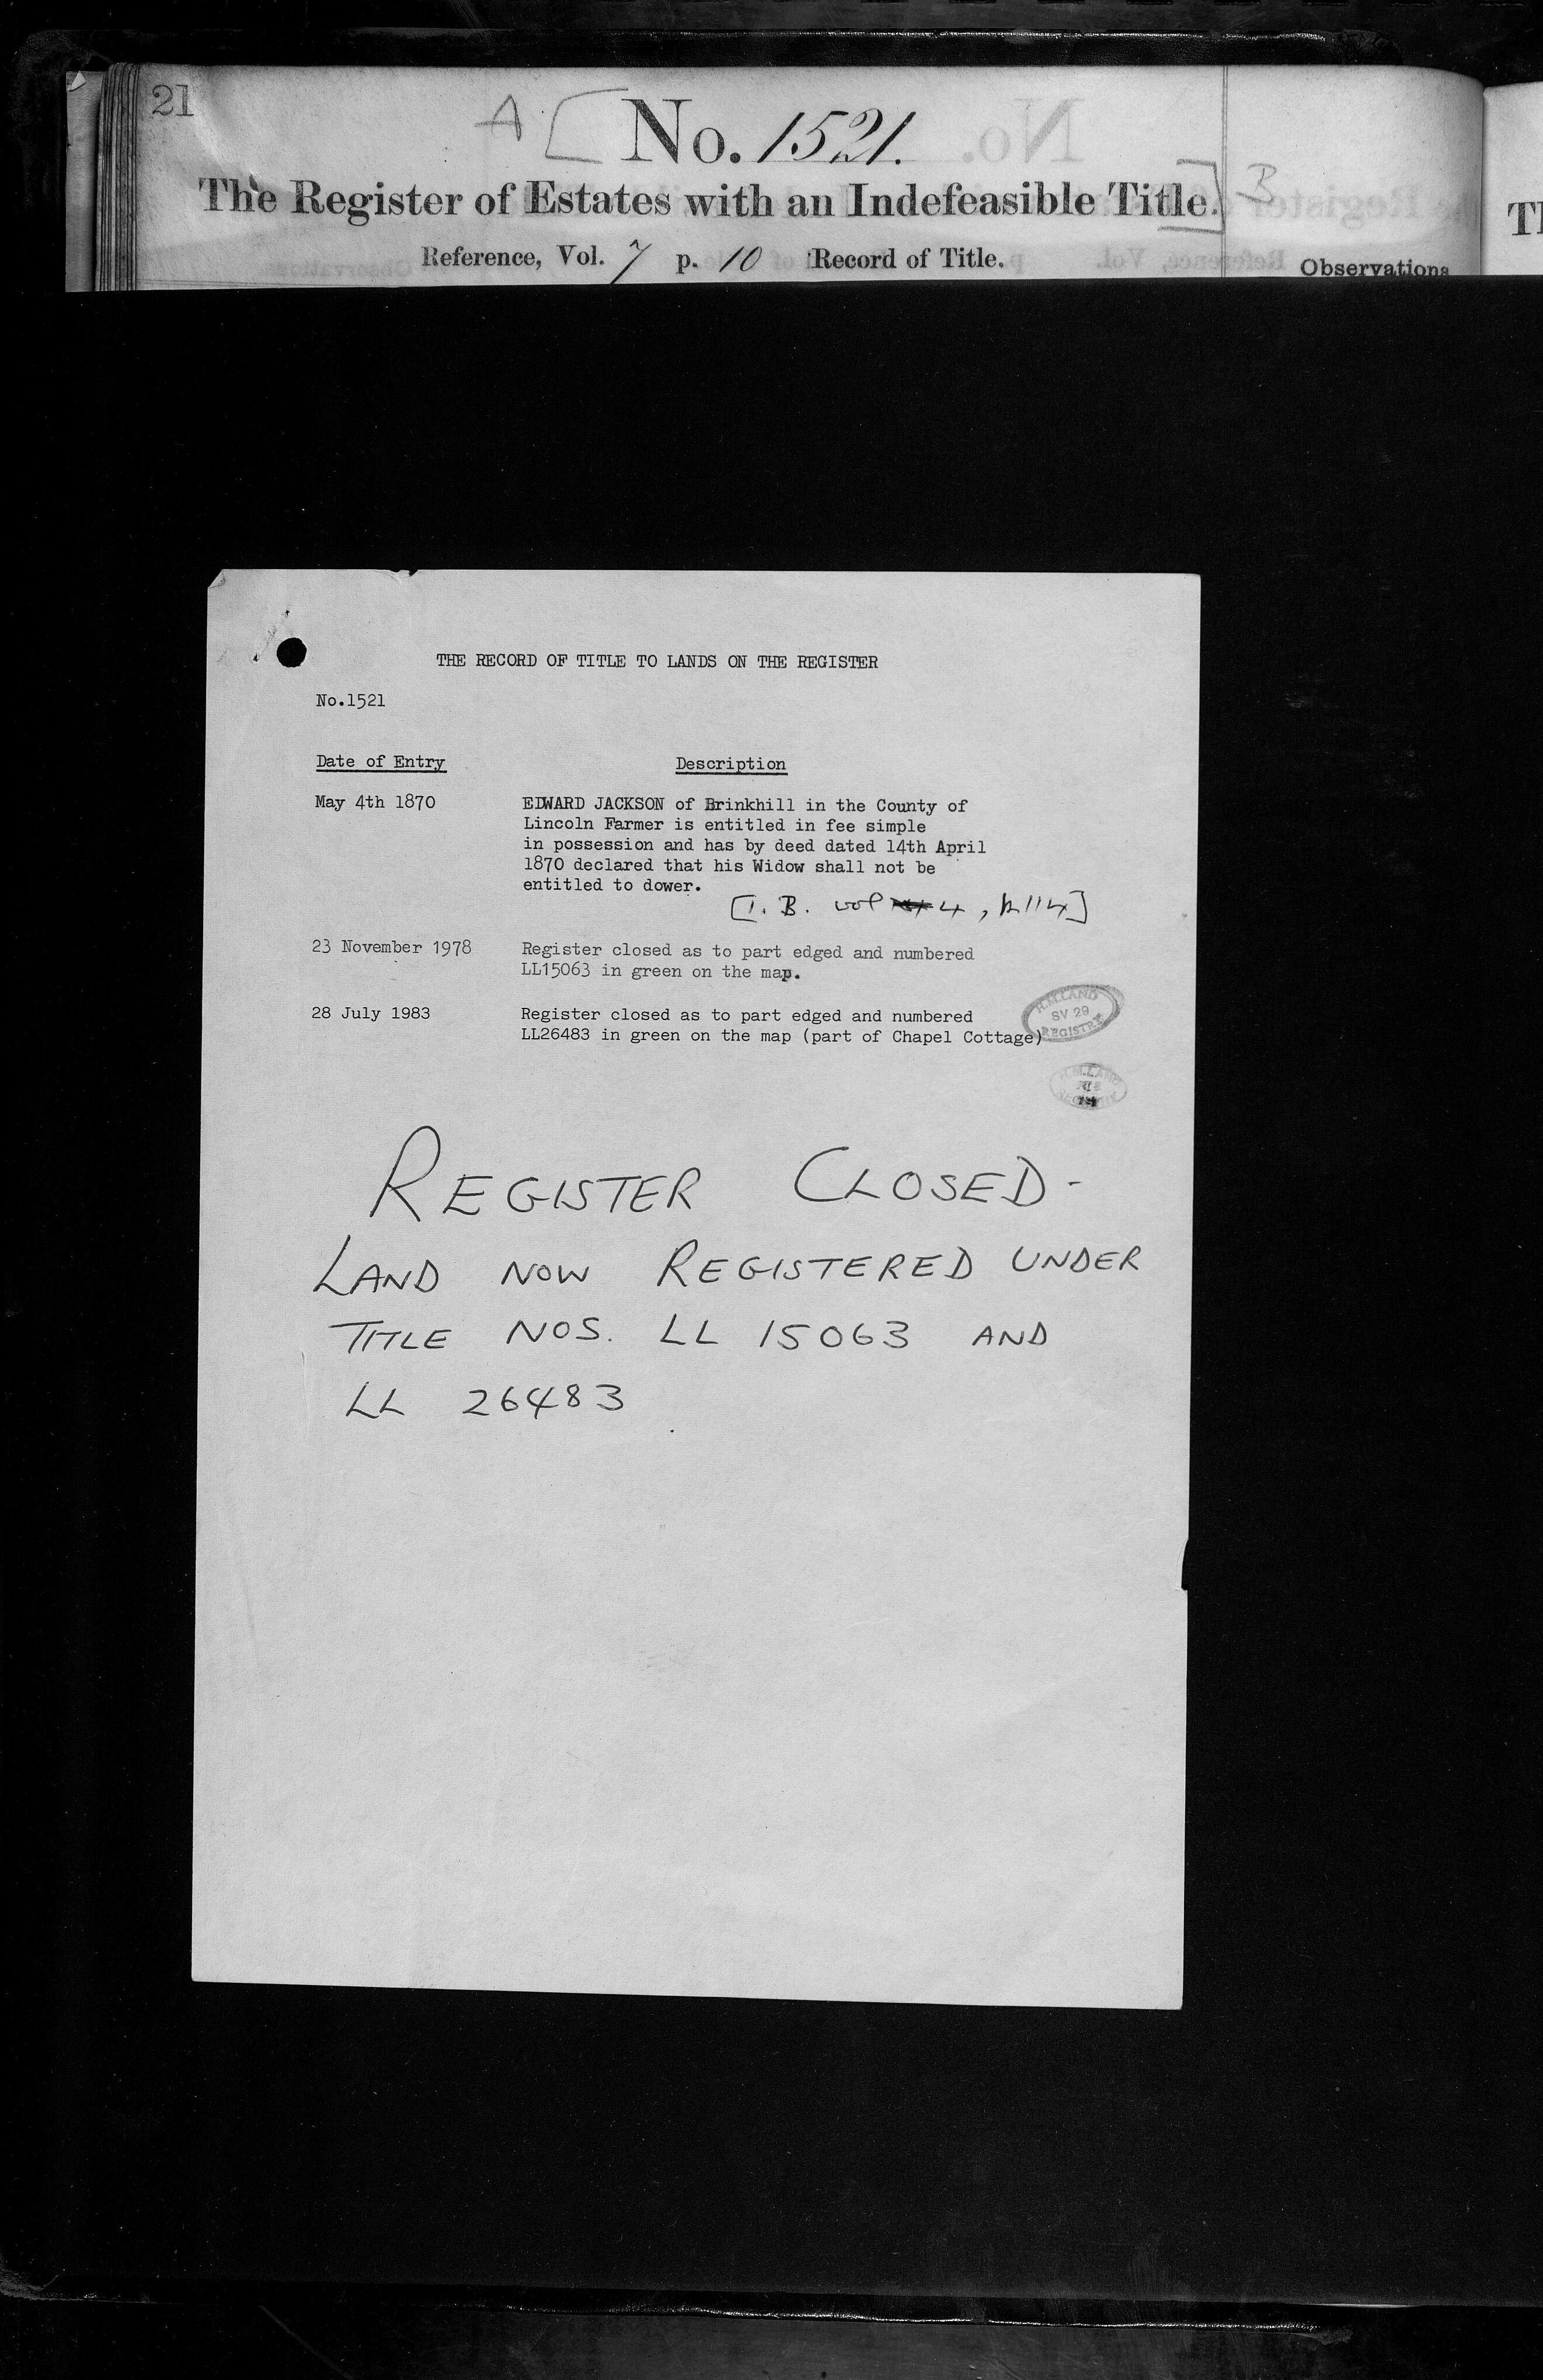 21
A [ No. 1521.
The Register of Estates with an Indefeasible Title.] B
Reference, Vol. 7 p. 10 Record of Title.
Observations
THE RECORD OF TITLE TO LANDS ON THE REGISTER
No.1521
Date of Entry Description
May 4th 1870 EDWARD JACKSON of Brinkhill in the County of
Lincoln Farmer is entitled in fee simple
in possession and has by deed dated 14th April
1870 declared that his Widow shall not be
entitled to dower.
[I. B. vol 4, p. 114]
23 November 1978 Register closed as to part edged and numbered
LL15063 in green on the map.
28 July 1983 Register closed as to part edged and numbered
LL26483 in green on the map (part of Chapel Cottage)
H.M. LAND
SV 29
REGISTRY
H.M. LAND
REGISTRY
REGISTER CLOSED -
LAND NOW REGISTERED UNDER
TITLE NOS. LL 15063 AND
LL 26483